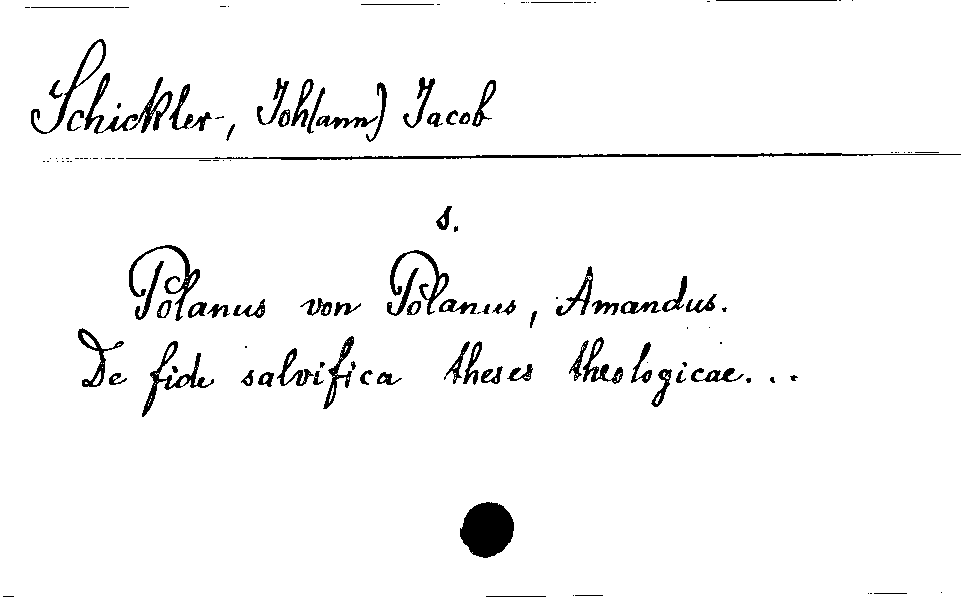 Schickler, Joh(ann) Jacob
s.
Polanus von Polanus, Amandus.
De fide salvifica theses theologicae...